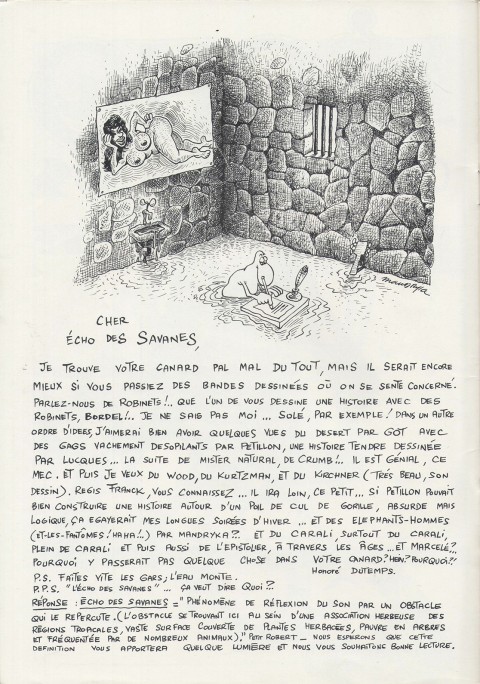 mandryka
CHER
ÉCHO DES SAVANES,
JE TROUVE VÔTRE CANARD PAL MAL DU TOUT, MAIS IL SERAIT ENCORE
MIEUX SI VOUS PASSIEZ DES BANDES DESSINÉES OÙ ON SE SENTE CONCERNÉ.
PARLEZ-NOUS DE ROBINETS!.. QUE L'UN DE VOUS DESSINE UNE HISTOIRE AVEC DES
ROBINETS, BORDEL!.. JE NE SAIS PAS MOI ... SOLÉ, PAR EXEMPLE! DANS UN AUTRE
ORDRE D'IDEES, J'AIMERAI BIEN AVOIR QUELQUES VUES DU DESERT PAR GOT AVEC
DES GAGS VACHEMENT DESOPILANTS PAR PETILLON, UNE HISTOIRE TENDRE DESSINÉE
PAR LUCQUES ... LA SUITE DE MISTER NATURAL, DE CRUMB!.. IL EST GÉNIAL, CE
MEC. ET PUIS JE VEUX DU WOOD, DU KURTZMAN, ET DU KIRCHNER (TRÈS BEAU, SON
DESSIN). REGIS FRANCK, VOUS CONNAISSEZ ... IL IRA LOIN, CE PETIT ... SI PETILLON POUVAIT
BIEN CONSTRUIRE UNE HISTOIRE AUTOUR D'UN POIL DE CUL DE GORILLE, ABSURDE MAIS
LOGIQUE, ÇA EGAYERAIT MES LONGUES SOIRÉES D'HIVER ... ET DES ELEPHANTS-HOMMES
(ET-LES-FANTÔMES! HAHA!..) PAR MANDRYKA?. ET DU CARALI, SURTOUT DU CARALI,
PLEIN DE CARALI ET PUIS AUSSI DE L'EPISTOLIER, À TRAVERS LES ÂGES ... ET MARCELÉ?..
POURQUOI Y PASSERAIT PAS QUELQUE CHOSE DANS VÔTRE CANARD? HEIN? POURQUOI??
HONORÉ DUTEMPS.
P.S. FAITES VITE LES GARS; L'EAU MONTE.
P.P.S. "L'ÉCHO DES SAVANES" ... ÇA VEUT DIRE QUOI??
RÉPONSE : ÉCHO DES SAVANES = "PHÉNOMÈNE DE RÉFLEXION DU SON PAR UN OBSTACLE
QUI LE REPERCUTE. (L'OBSTACLE SE TROUVANT ICI AU SEIN D'UNE ASSOCATION HERBEUSE DES
RÉGIONS TROPICALES, VASTE SURFACE COUVERTE DE PLANTES HERBACÉES, PAUVRE EN ARBRES
ET FRÉQUENTÉE PAR DE NOMBREUX ANIMAUX)." PETIT ROBERT _ NOUS ESPERONS QUE CETTE
DEFINITION VOUS APPORTERA QUELQUE LUMIÈRE ET NOUS VOUS SOUHAITONS BONNE LECTURE.